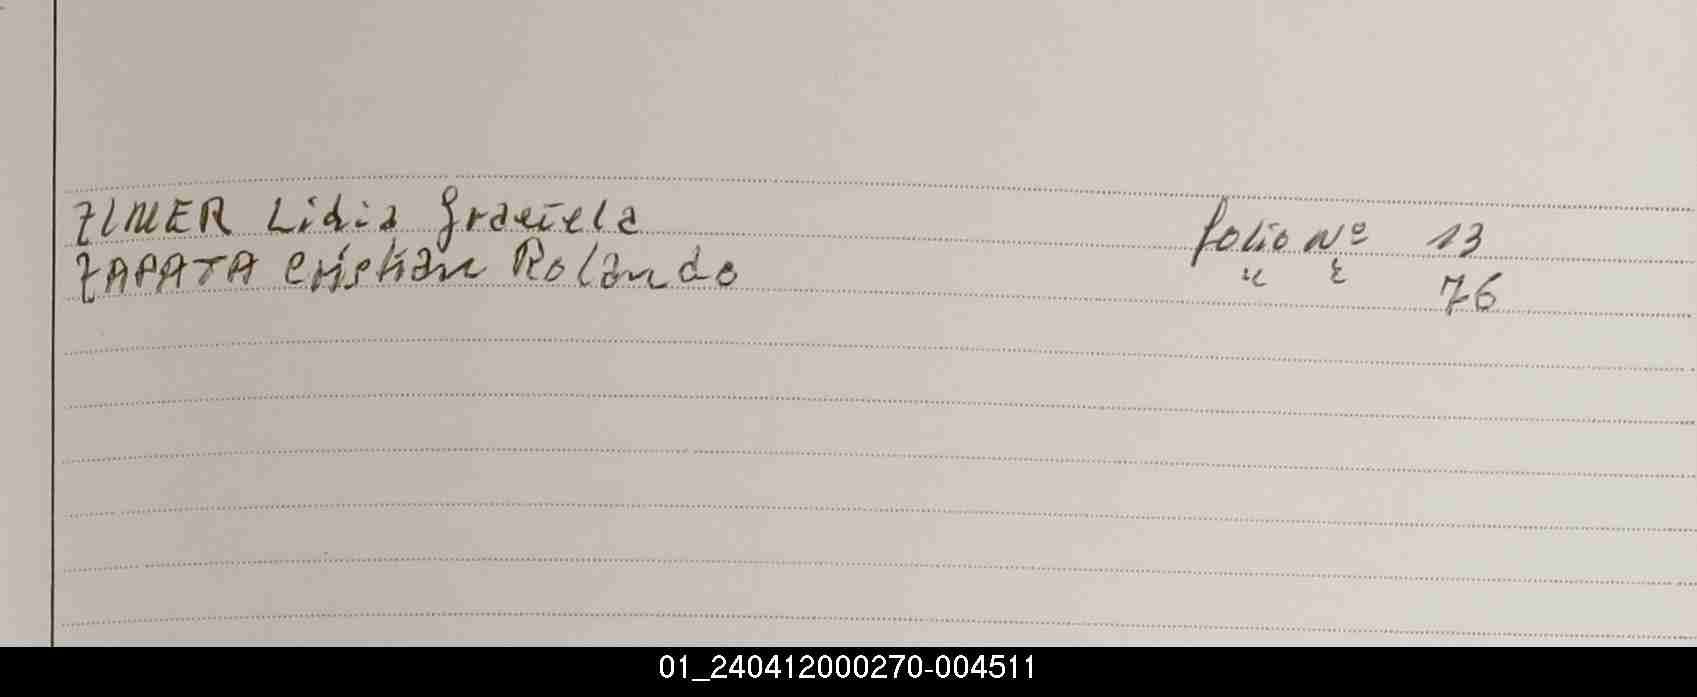 ZIMER Lidia Graciela folio Nº 13
ZAPATA Cristian Rolando " " 76
01_240412000270-004511